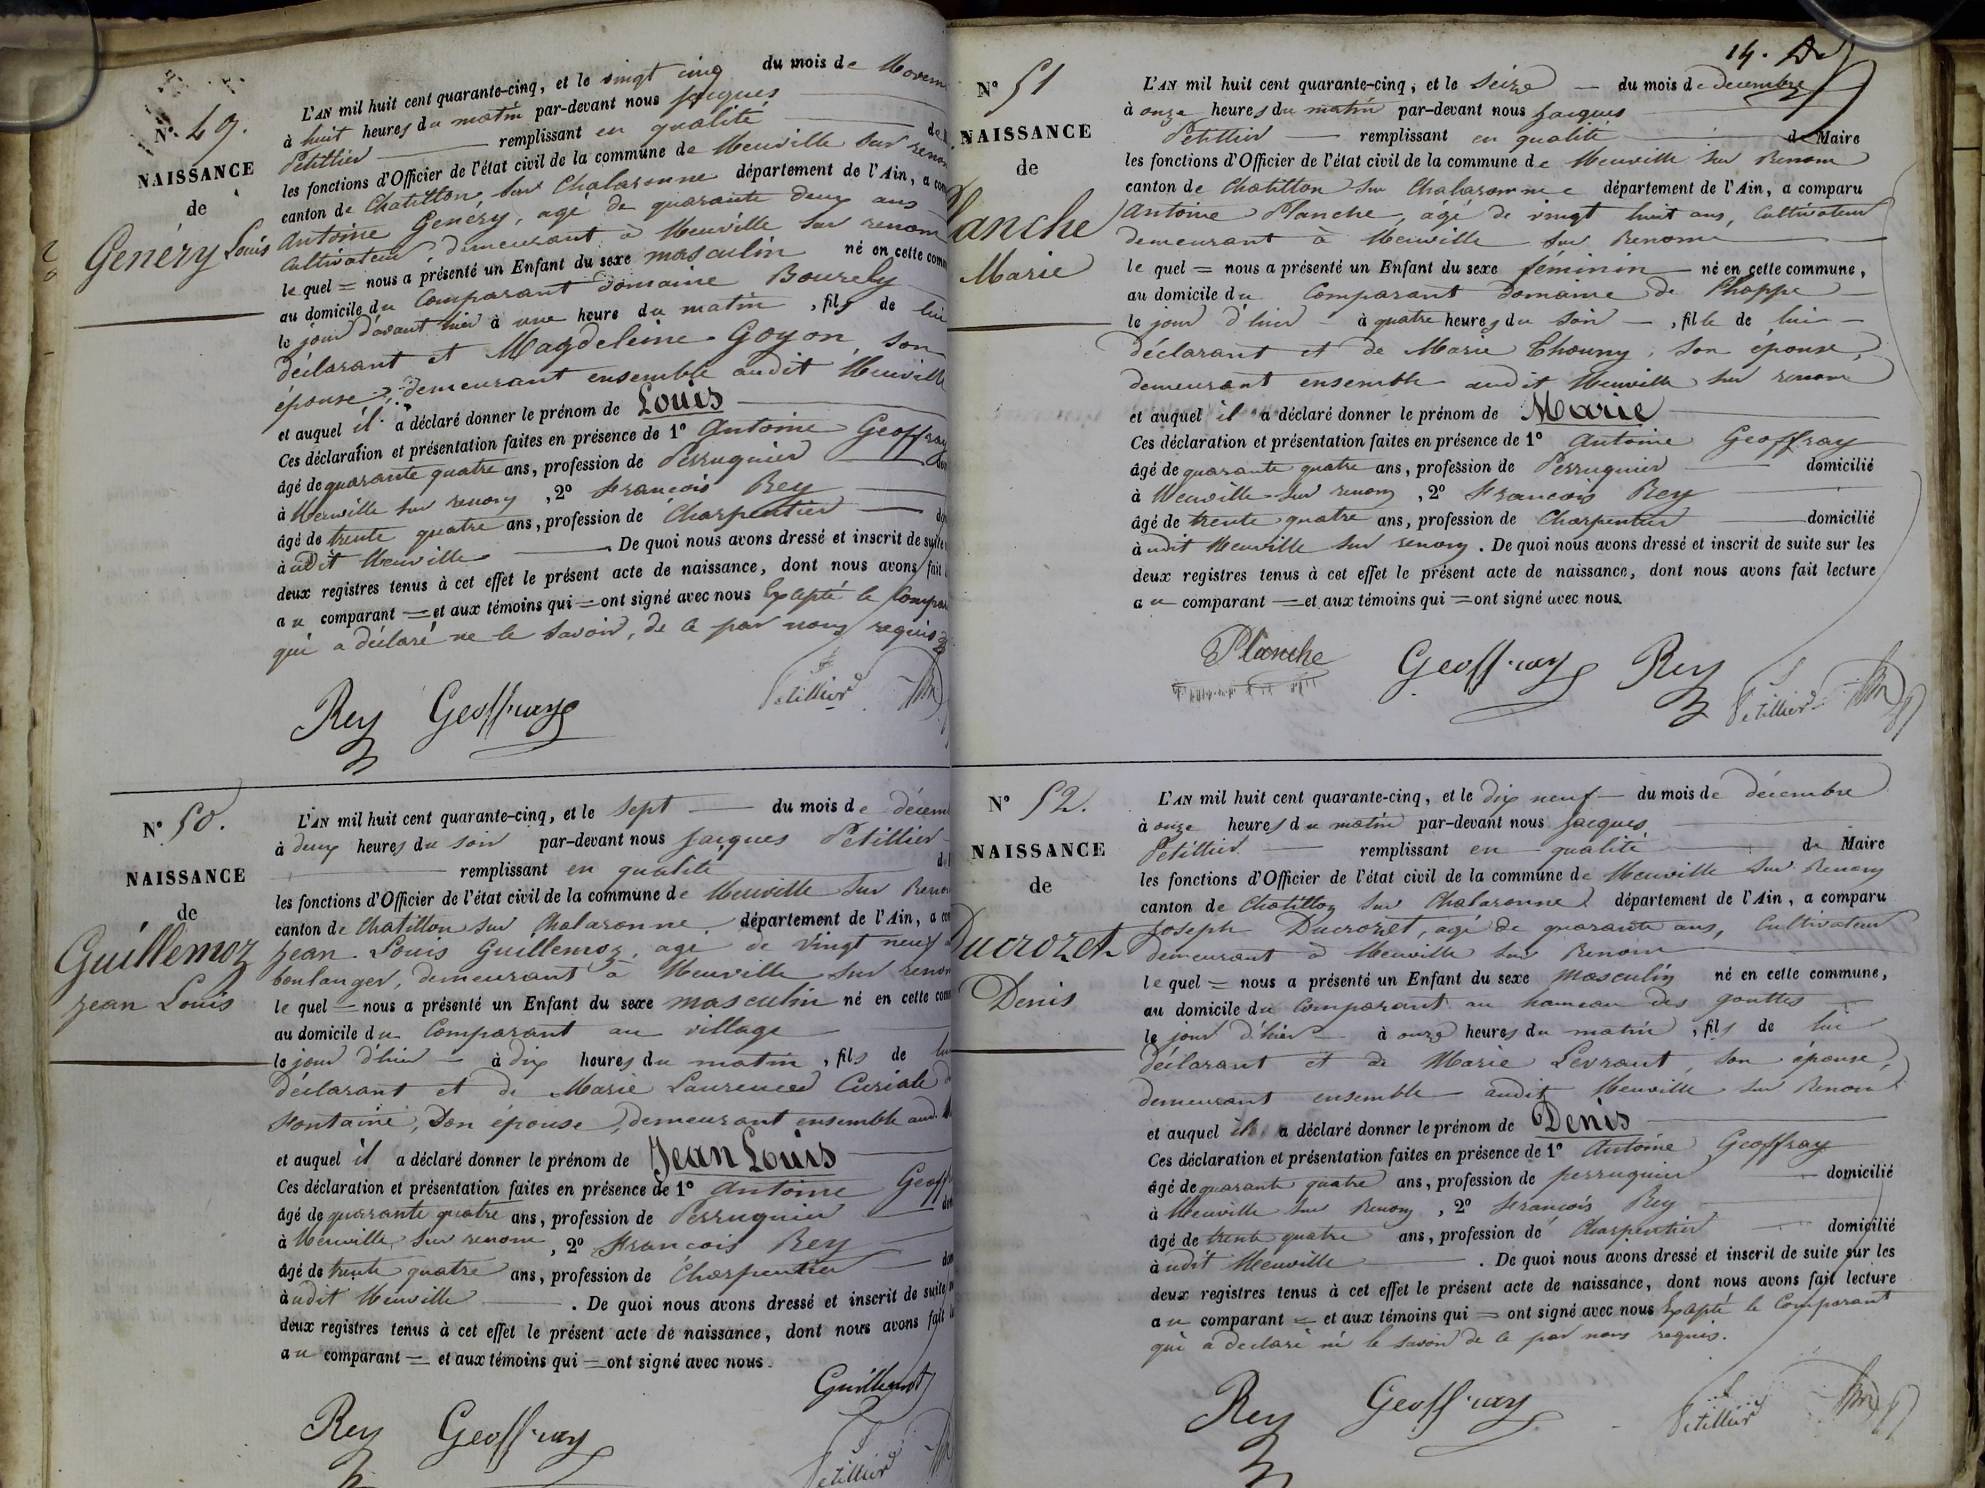 Nº 49.
NAISSANCE
de
Genéry Louis
L'AN mil huit cent quarante-cinq, et le vingt cinq du mois de Novem
à huit heures du matin par-devant nous Jacques
Petillier remplissant en qualité de
les fonctions d'Officier de l'état civil de la commune de Neuville sur renon
canton de Chatillon sur Chalaronne département de l'Ain, a com
Antoine Genéry, agé de quarante deux ans
Cultivateur demeurant à Neuville sur renom
le quel = nous a présenté un Enfant du sexe masculin né en cette comm
au domicile du Comparant Domaine Bourely
le jour d'avant hier à une heure du matin, fils de lui
déclarant et Magdeleine Goyon, son
épouse, demeurant ensemble audit Neuville
et auquel il a déclaré donner le prénom de Louis
Ces déclaration et présentation faites en présence de 1º Antoine Geoffray
âgé de quarante quatre ans, profession de Perruquier
à Neuville sur renom, 2º François Rey
âgé de trente quatre ans, profession de Charpentier
à udit Neuville. De quoi nous avons dressé et inscrit de suite
deux registres tenus à cet effet le présent acte de naissance, dont nous avons fait
au comparant = et aux témoins qui = ont signé avec nous Exapté le Compar
qui a déclaré ne le savoir, de ce par nous requis
Rey Geoffray Petillier
Nº 50.
NAISSANCE
de
Guillemoz
Jean Louis
L'AN mil huit cent quarante-cinq, et le sept du mois de décem
à deux heures du soir par-devant nous Jacques Petillier
remplissant en qualité
les fonctions d'Officier de l'état civil de la commune de Neuville sur Renon
canton de Chatillon sur Chalaronne. département de l'Ain, a com
Jean Louis Guillemoz, agé de vingt neuf
boulanger, demeurant à Neuville sur renom
le quel = nous a présenté un Enfant du sexe masculin né en cette com
au domicile du Comparant au village
le jour d'hier à dix heures du matin, fils de lui
déclarant et de Marie Laurence Curiale
Fontaine, Son épouse, demeurant ensemble aud.
et auquel il a déclaré donner le prénom de Jean Louis
Ces déclaration et présentation faites en présence de 1º Antoine Geoff
âgé de quarante quatre ans, profession de Perruquier
à Neuville sur renom, 2º François Rey
âgé de trente quatre ans, profession de Charpentier
à udit Neuville. De quoi nous avons dressé et inscrit de suite
deux registres tenus à cet effet le présent acte de naissance, dont nous avons fait
au comparant = et aux témoins qui = ont signé avec nous.
Guillemot
Rey Geoffray Petillier
14.
Nº 51
NAISSANCE
de
Planche
Marie
L'AN mil huit cent quarante-cinq, et le Seize du mois de décembre
à onze heures du matin par-devant nous Jacques
Petillier remplissant en qualité de Maire
les fonctions d'Officier de l'état civil de la commune de Neuville sur Renom
canton de Chatillon sur Chalaronne département de l'Ain, a comparu
Antoine Planche, âgé de vingt huit ans, Cultivateur
demeurant à Neuville sur Renom
le quel = nous a présenté un Enfant du sexe féminin né en cette commune,
au domicile du Comparant Domaine de Chappe
le jour d'hier à quatre heures du Soir, fille de lui
déclarant et de Marie Chouny, Son épouse,
demeurant ensemble audit Neuville sur renom
et auquel il a déclaré donner le prénom de Marie
Ces déclaration et présentation faites en présence de 1º Antoine Geoffray
âgé de quarante quatre ans, profession de Perruquier domicilié
à Neuville sur renom, 2º François Rey
âgé de trente quatre ans, profession de Charpentier domicilié
à udit Neuville sur renom. De quoi nous avons dressé et inscrit de suite sur les
deux registres tenus à cet effet le présent acte de naissance, dont nous avons fait lecture
au comparant = et aux témoins qui = ont signé avec nous.
Planche Geoffray Rey Petillier
Nº 52.
NAISSANCE
de
Ducrozet
Denis
L'AN mil huit cent quarante-cinq, et le dix neuf du mois de décembre
à onze heures du matin par-devant nous Jacques
Petillier remplissant en qualité de Maire
les fonctions d'Officier de l'état civil de la commune de Neuville sur Renom
canton de Chatillon sur Chalaronne département de l'Ain, a comparu
Joseph Ducrozet, agé de quarante ans, Cultivateur
demeurant à Neuville sur Renom
le quel = nous a présenté un Enfant du sexe masculin né en cette commune,
au domicile du Comparant au hameau des gouttes
le jour d'hier à onze heures du matin, fils de lui
déclarant et de Marie Levraut, son épouse,
demeurant ensemble audit Neuville sur Renom
et auquel il a déclaré donner le prénom de Denis
Ces déclaration et présentation faites en présence de 1º Antoine Geoffray
âgé de quarante quatre ans, profession de perruquier domicilié
à Neuville sur Renom, 2º François Rey
âgé de trente quatre ans, profession de Charpentier domicilié
à udit Neuville. De quoi nous avons dressé et inscrit de suite sur les
deux registres tenus à cet effet le présent acte de naissance, dont nous avons fait lecture
au comparant = et aux témoins qui = ont signé avec nous Exapté le Comparant
qui a déclaré ne le savoir de ce par nous requis.
Rey Geoffray Petillier